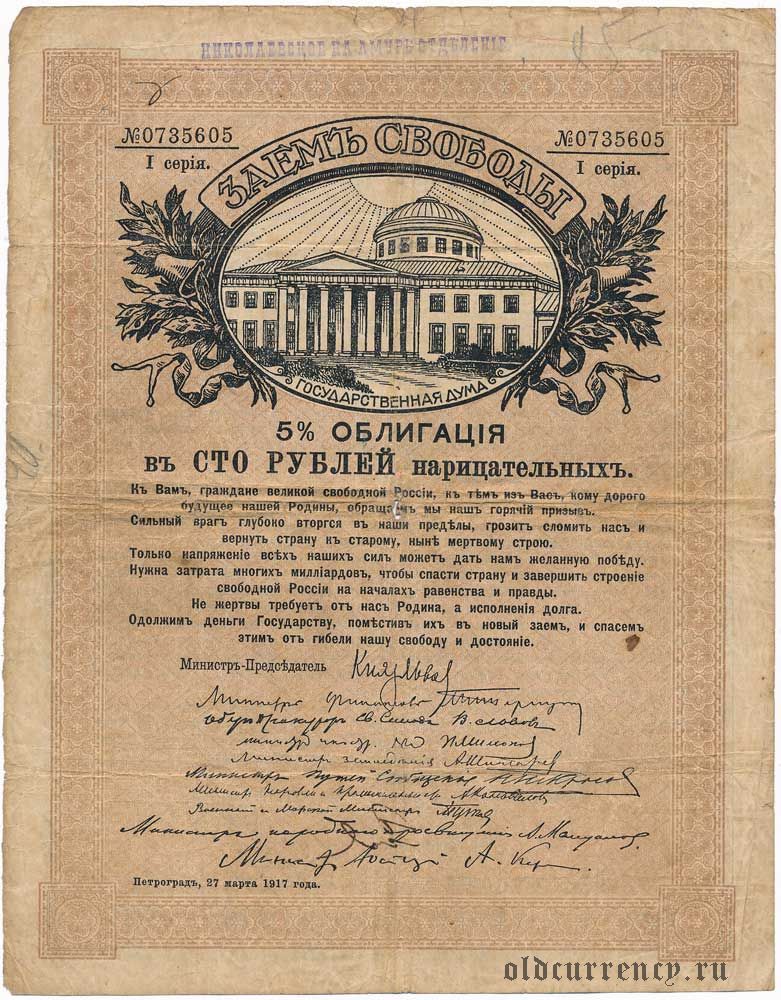 НИКОЛАЕВСКОЕ НА АМУРѢ ОТДѢЛЕНІЕ
№0735605
I серія.
№0735605
I серія.
ЗАЕМЪ СВОБОДЫ
ГОСУДАРСТВЕННАЯ ДУМА
5% ОБЛИГАЦІЯ
въ СТО РУБЛЕЙ нарицательныхъ.
Къ Вамъ, граждане великой свободной Россіи, къ тѣмъ изъ Васъ, кому дорого
будущее нашей Родины, обращаемъ мы нашъ горячій призывъ.
Сильный врагъ глубоко вторгся въ наши предѣлы, грозитъ сломить насъ и
вернуть страну къ старому, нынѣ мертвому строю.
Только напряженіе всѣхъ нашихъ силъ можетъ дать намъ желанную побѣду.
Нужна затрата многихъ милліардовъ, чтобы спасти страну и завершить строеніе
свободной Россіи на началахъ равенства и правды.
Не жертвы требуетъ отъ насъ Родина, а исполненія долга.
Одолжимъ деньги Государству, помѣстивъ ихъ въ новый заемъ, и спасемъ
этимъ отъ гибели нашу свободу и достояніе.
Министръ-Предсѣдатель Князь Львов
Министръ Финансовъ
Обер Прокурор Св. Синода В. Львовъ
Министръ земледѣлія А. Шингарев
Министръ Путей Сообщенія
Военный и Морской Министръ
Министръ народнаго просвѣщенія А. Мануйлов
Министр Юстиціи А. Кер
Петроградъ, 27 марта 1917 года.
oldcurrency.ru